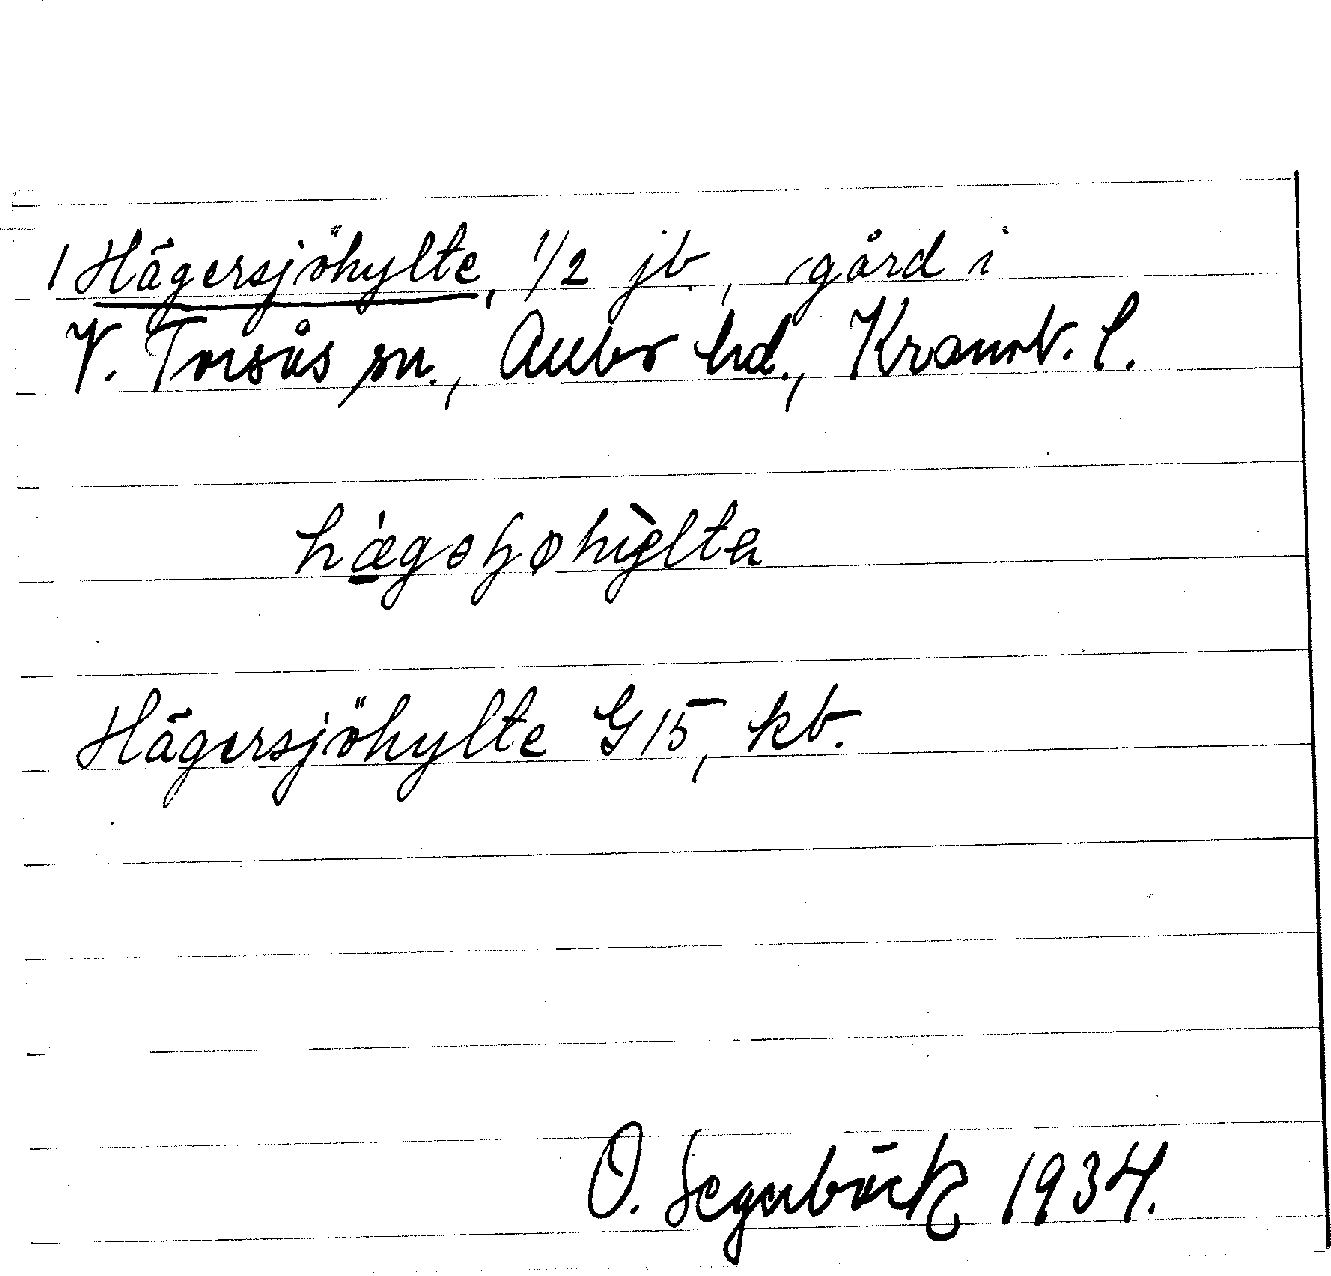 1 Hägersjöhylte, 1/2 jb., gård i
V. Torsås sn., Allbo hd., Kronob. l.
Hägersjöhylte G 15, kb.
O. Segerbäck 1934.